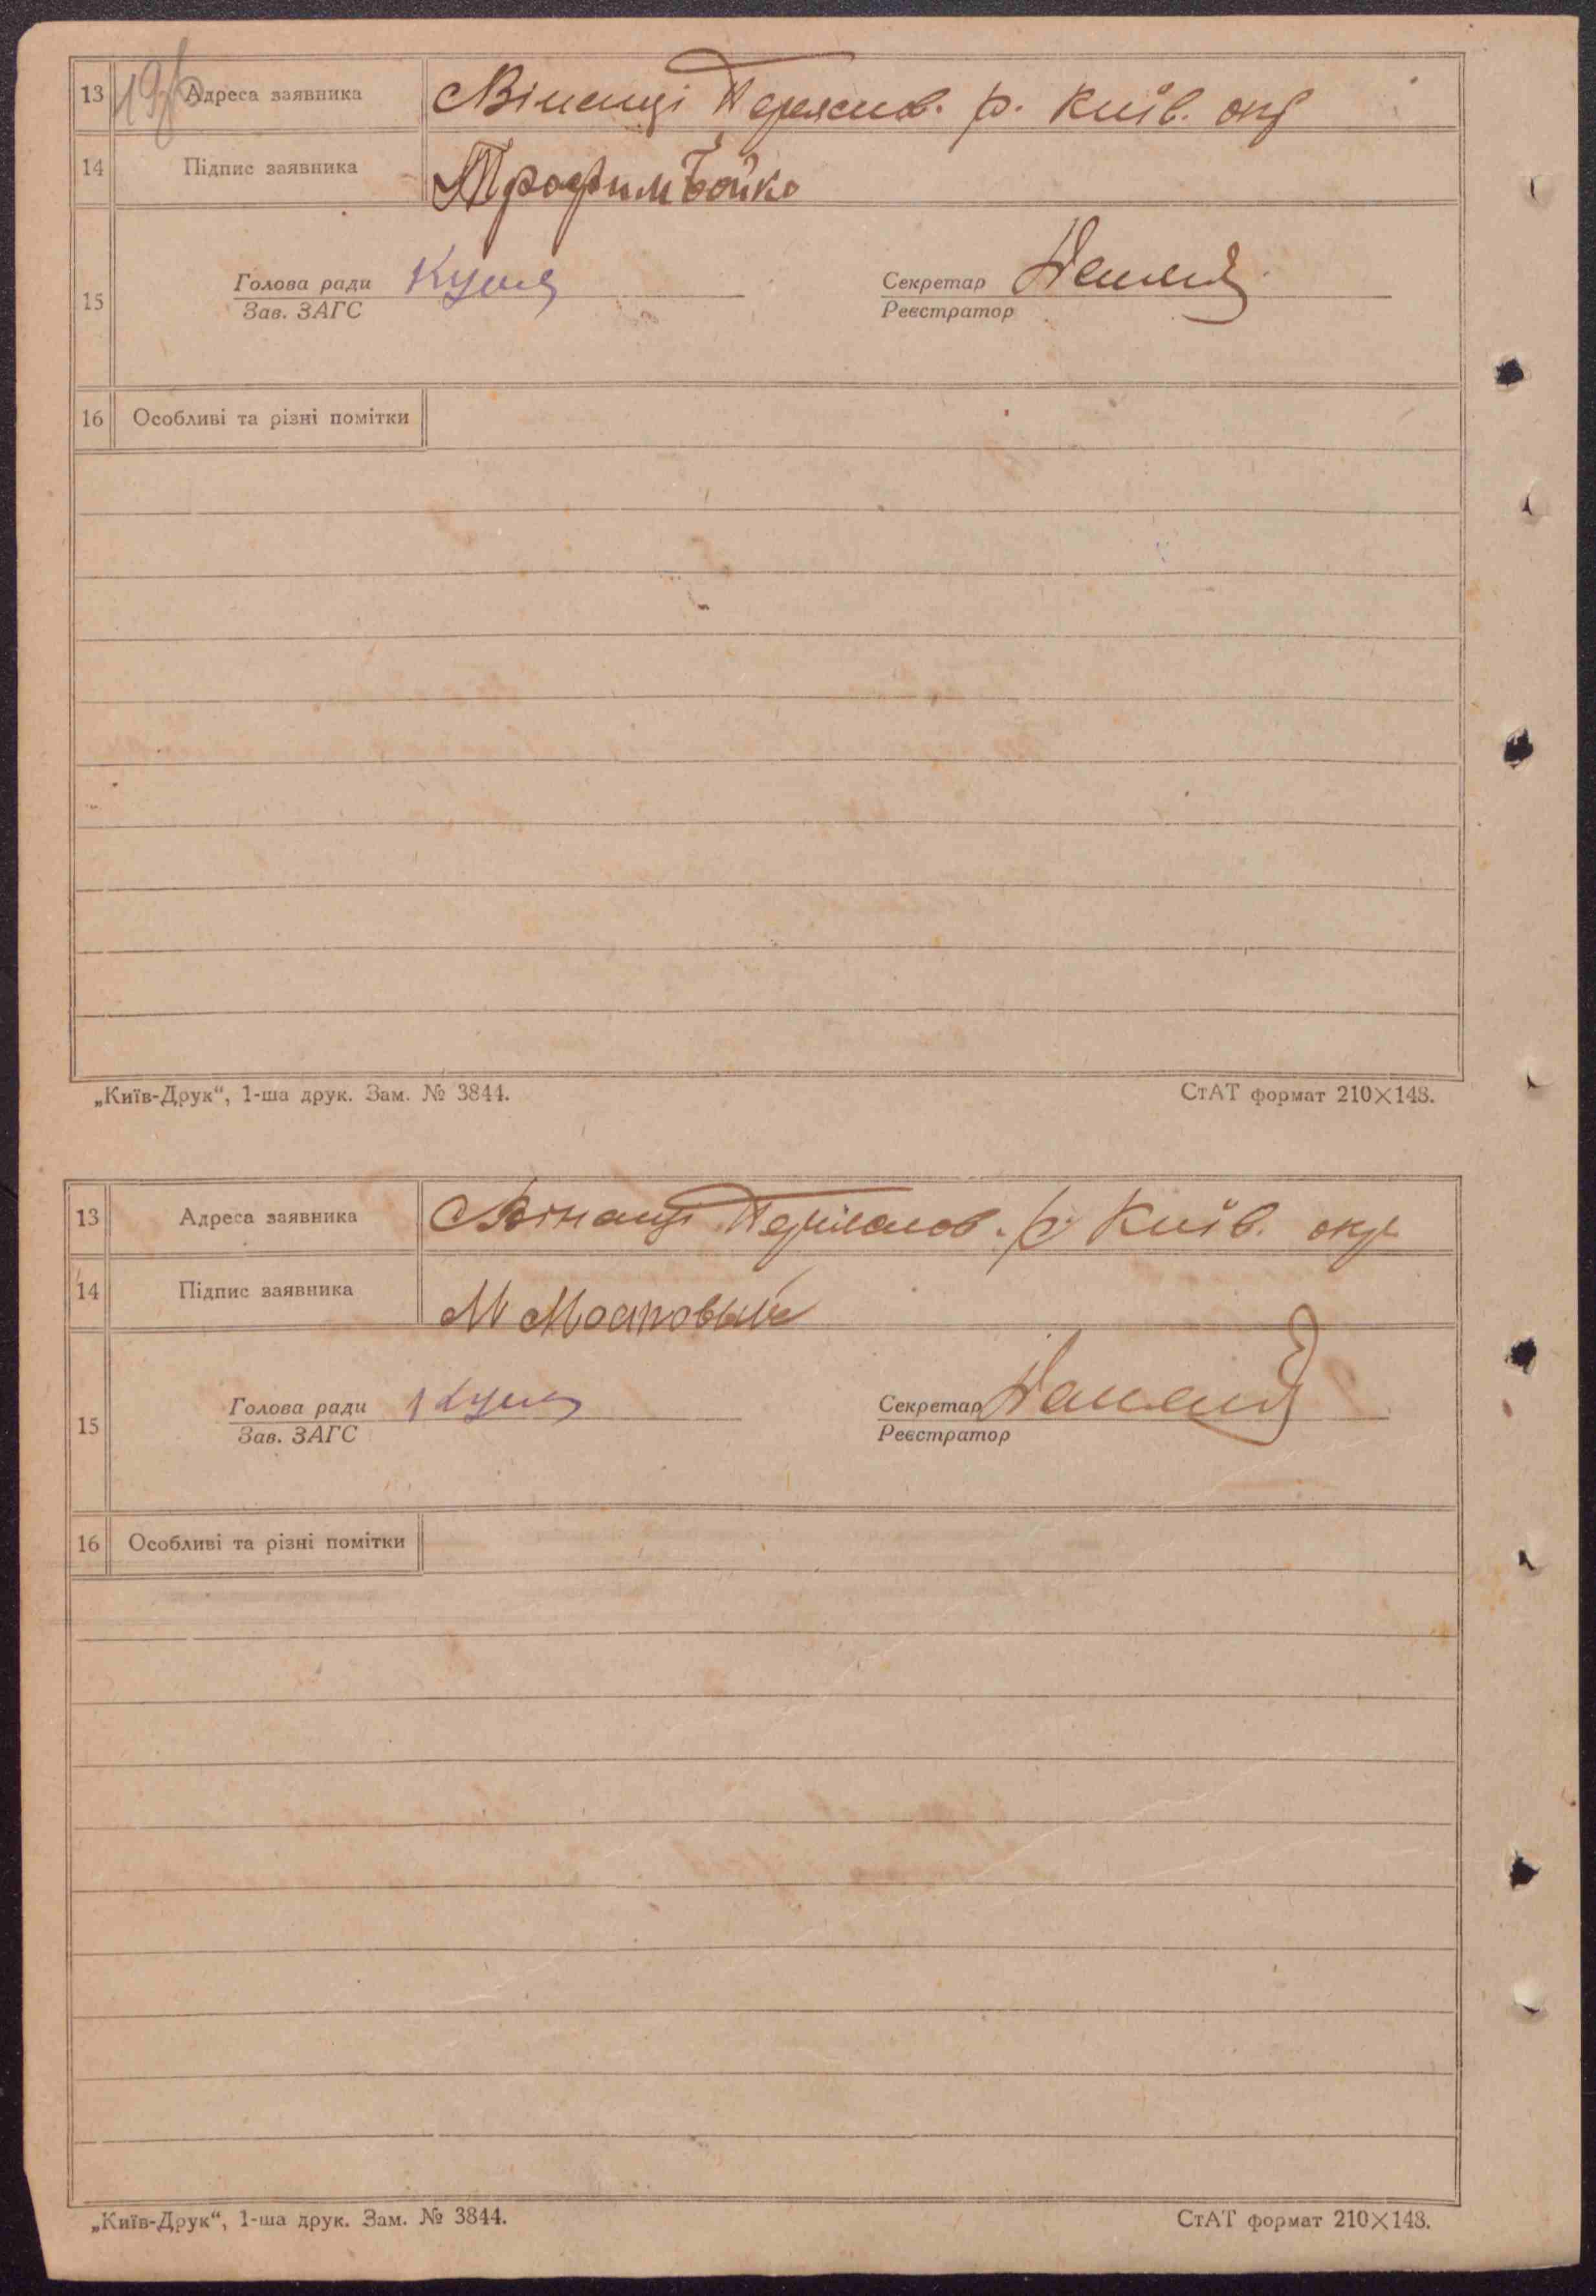 13 Адреса заявника Вінанці Переяслав. р. Київ. окр
14 Підпис заявника Трофим Бойко
15 Голова ради Секретар
Зав. ЗАГС Реєстратор
16 Особливі та різні помітки
„Київ-Друк“, 1-ша друк. Зам. № 3844. СтАТ формат 210×148.
13 Адреса заявника Вінанці Переяслав. р. Київ. окр
14 Підпис заявника М Мостовый
15 Голова ради Секретар
Зав. ЗАГС Реєстратор
16 Особливі та різні помітки
„Київ-Друк“, 1-ша друк. Зам. № 3844. СтАТ формат 210×148.